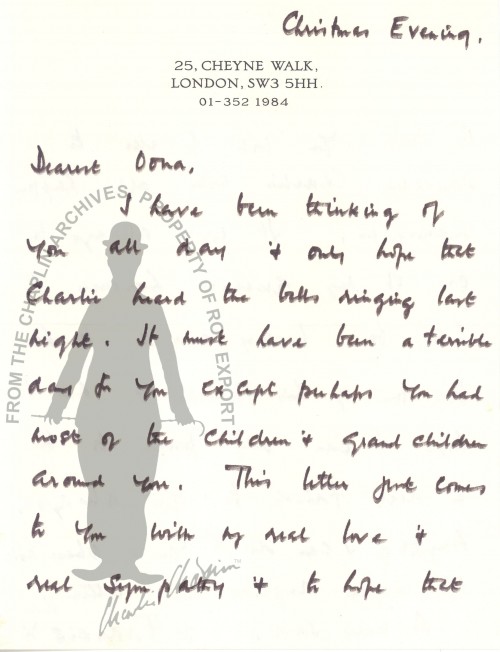 Christmas Evening.
25, CHEYNE WALK,
LONDON, SW3 5HH.
01-352 1984
Dearest Oona,
I have been thinking of
you all day & only hope that
Charlie heard the bells ringing last
night. It must have been a terrible
day for you except perhaps you had
most of the children & grand children
around you. This letter just comes
to you with my real love &
real sympathy & to hope that
FROM THE CHAPLIN ARCHIVES, PROPERTY OF ROY EXPORT
Charlie Chaplin™